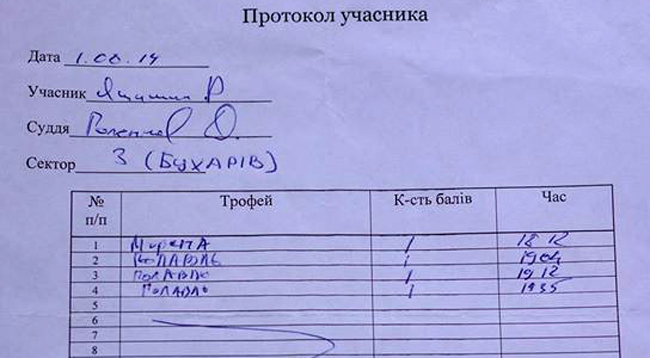 Протокол учасника
Дата 1.06.14
Учасник
Суддя О.
Сектор 3 (БУХАРІВ)
№ п/п Трофей К-сть балів Час
1 1 18 12
2 1 1904
3 ГОЛАВЛЮ 1 19 12
4 ГОЛАВЛЮ 1 1935
5
6
7
8